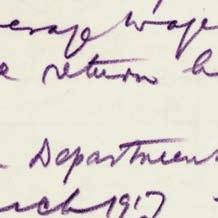 erage Wage
e return h
Department
rch 1917